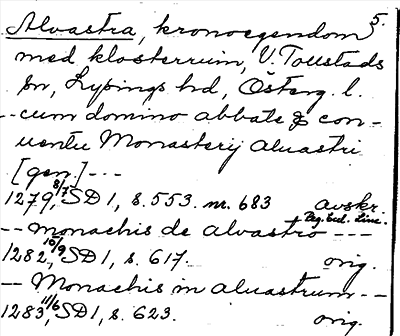 5.
Alvastra, kronoegendom
med klosterruin, V. Toustads
sn, Lysings hd, Österg. l.
-- cum domino abbate & con-
uentu Monasterij aluastri
[gen.] ---
1279 8/7, SD 1, s. 553. nr. 683 avskr.
+ Reg. Eccl. Linc.
-- monachis de alvastro ---
1282 10/9, SD 1, s. 617. orig.
-- Monachis in aluastrum --
1283 11/6, SD 1, s. 623. orig.